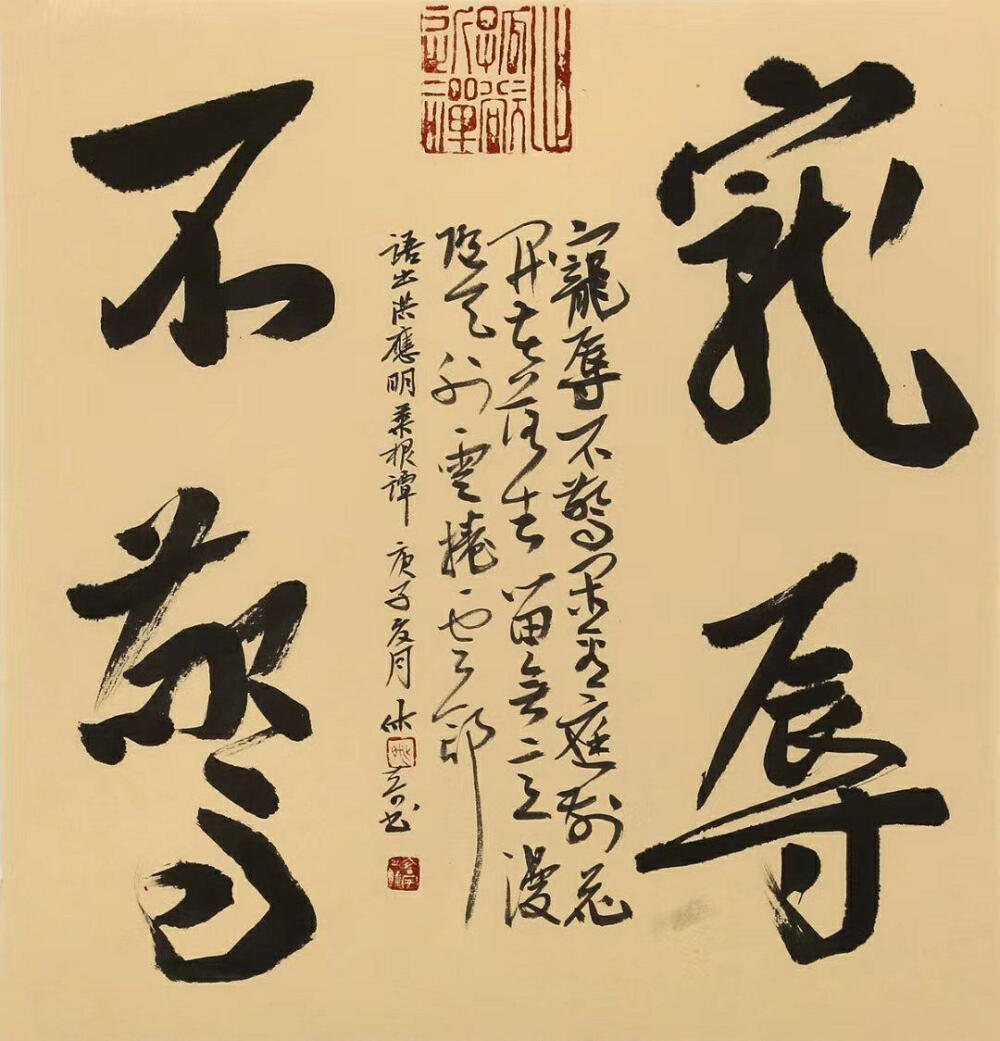 寵辱
不驚
寵辱不驚閑看庭前花
開花落去留無意漫
隨天外雲捲雲舒
語出洪應明菜根譚 庚子夏月